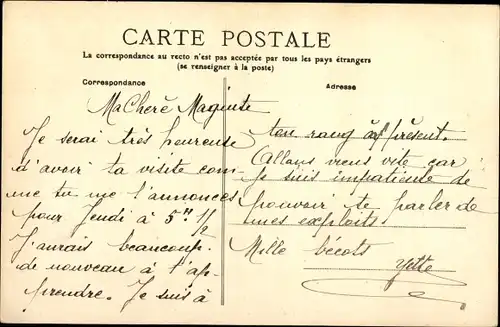 CARTE POSTALE
La correspondance au recto n'est pas acceptée par tous les pays étrangers
(se renseigner à la poste)
Correspondance
Adresse
Ma Chère Maguite
Je serai très heureuse
d'avoir ta visite com-
me tu me l'annonces
pour Jeudi à 5h 1/2
J'aurais beaucoup
de nouveau à t'ap-
prendre. Je suis à
ton rang à présent.
Allons viens vite car
je suis impatiente de
pouvoir te parler de
mes exploits.
Mille bécots
Yette